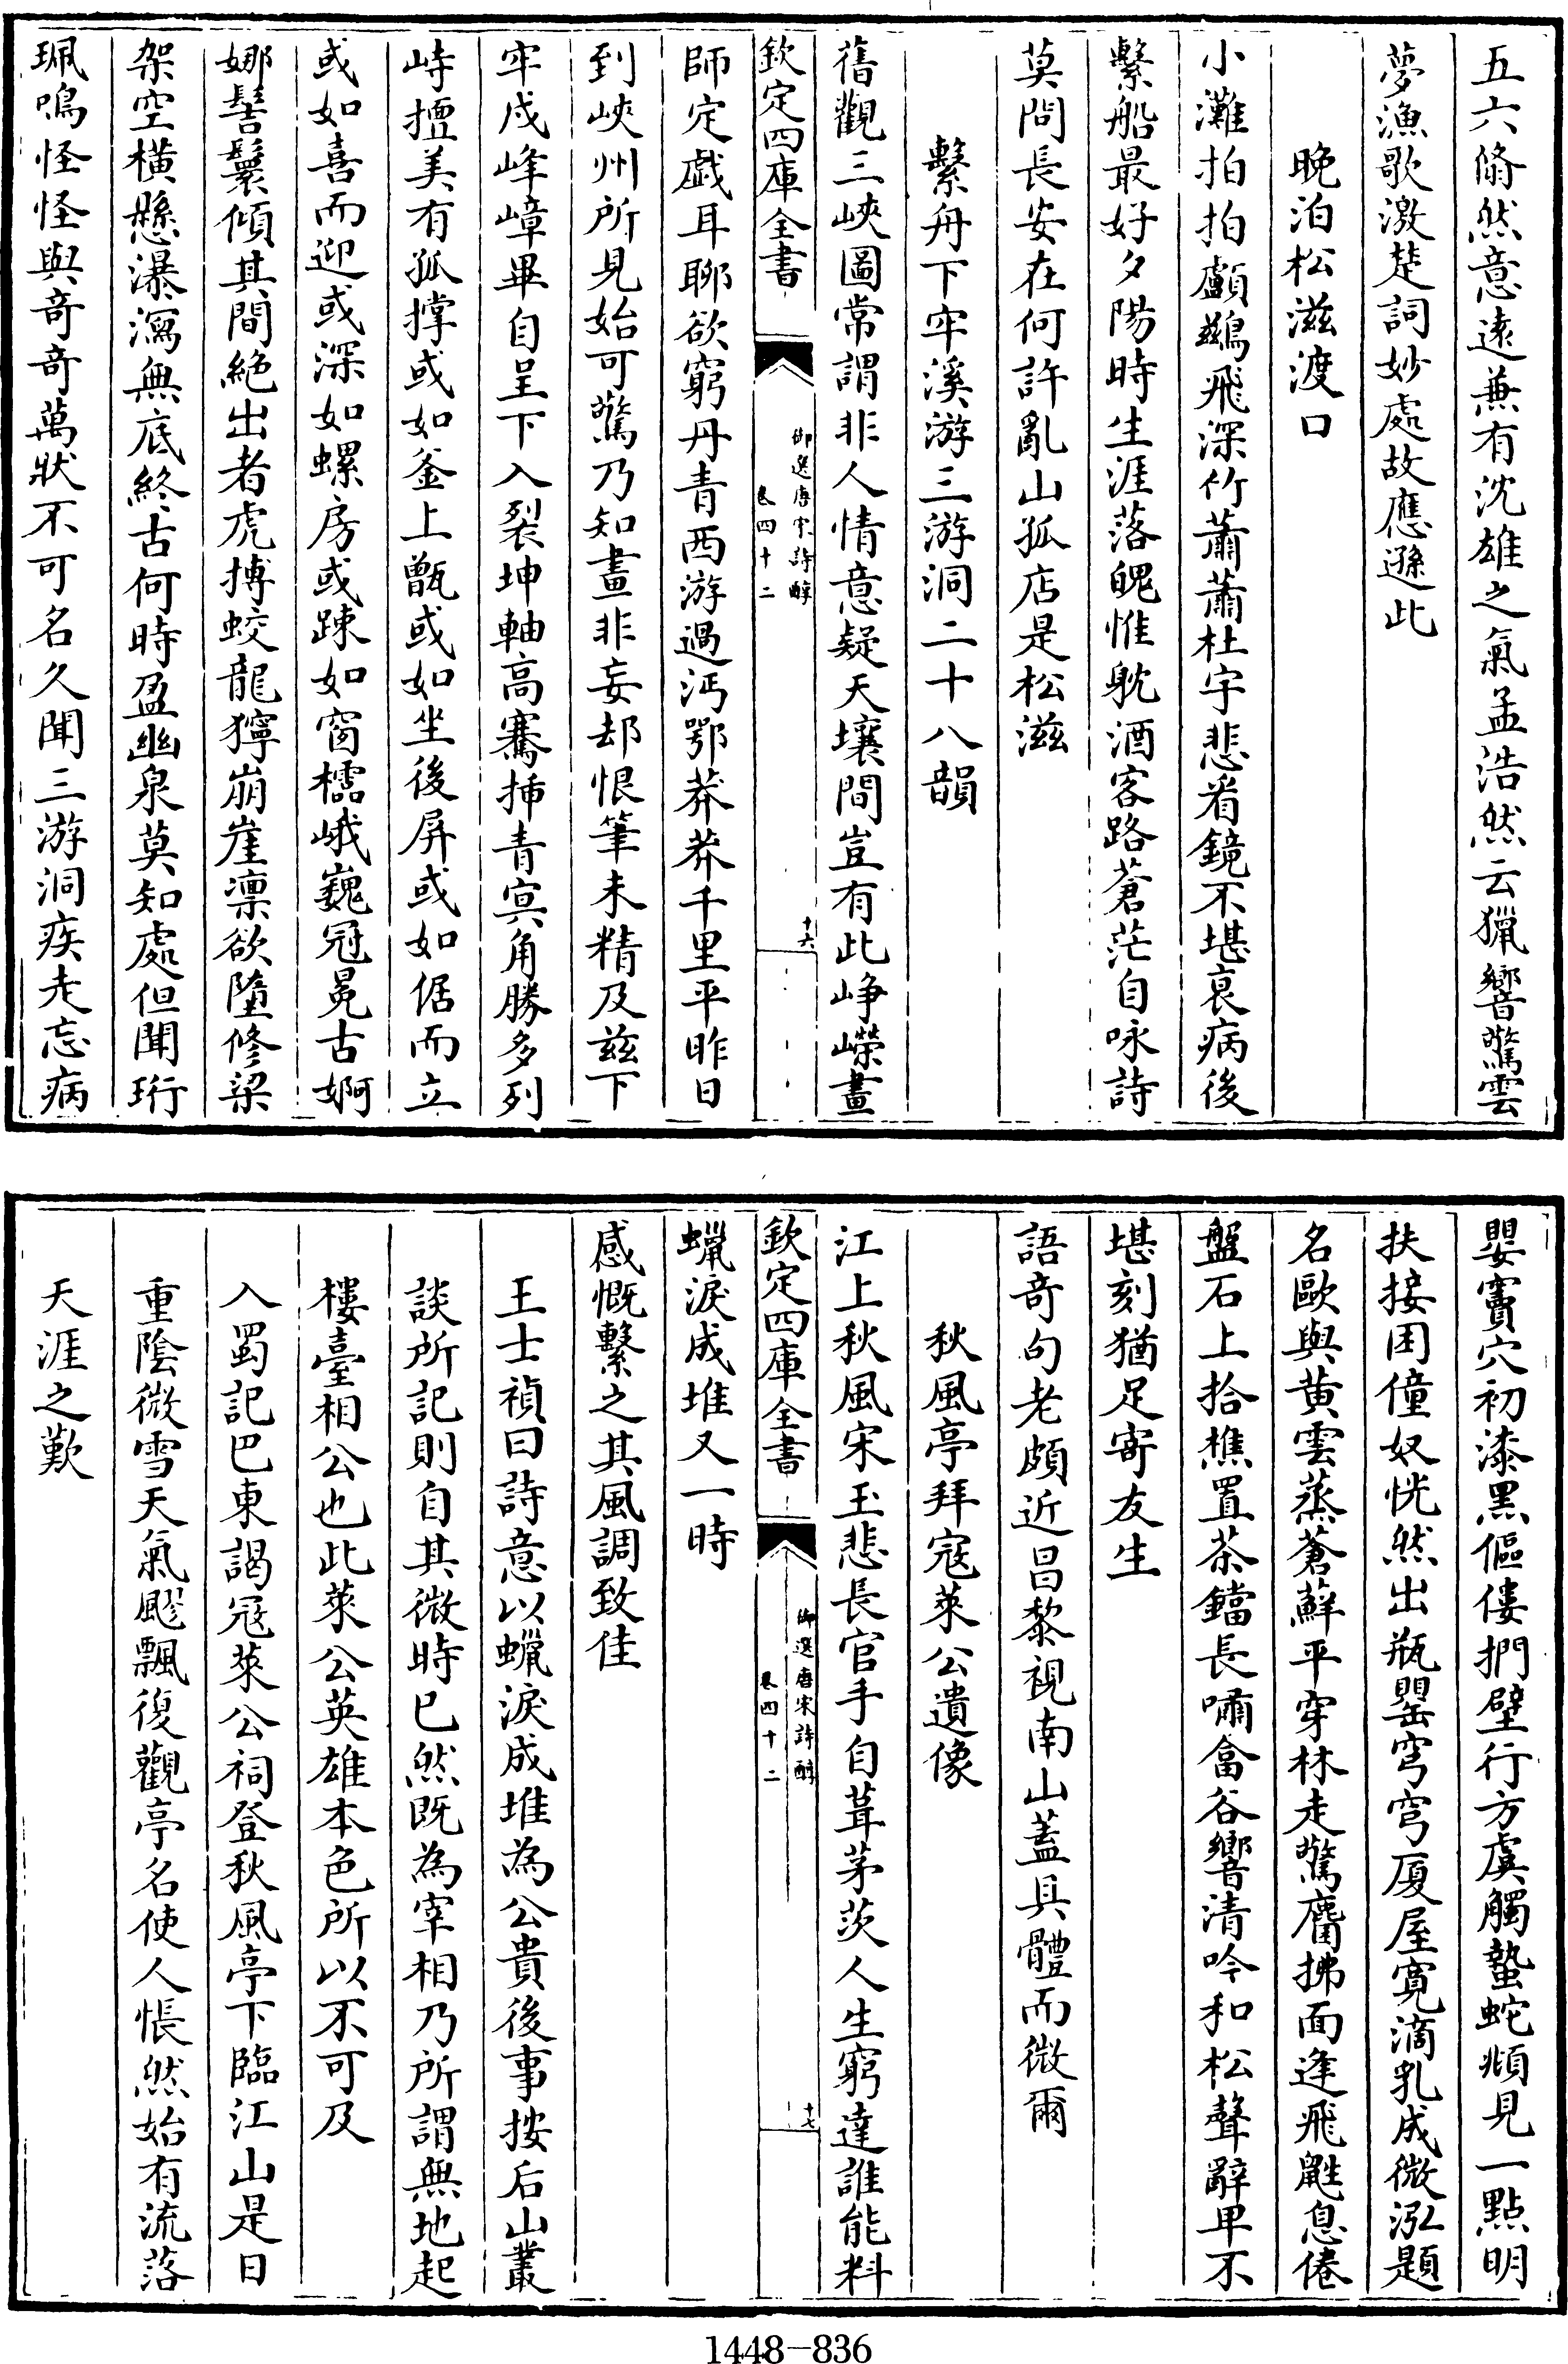 五六翛然意遠兼有沈雄之氣孟浩然云獵響驚雲
夢漁歌激楚詞妙處故應遜此
晚泊松滋渡口
小灘拍拍鸕鷀飛深竹蕭蕭杜宇悲看鏡不堪衰病後
繫船最好夕陽時生涯落魄惟躭酒客路蒼茫自咏詩
莫問長安在何許亂山孤店是松滋
繫舟下牢溪游三游洞二十八韻
舊觀三峽圖常謂非人情意疑天壤間豈有此崢嶸畫
欽定四庫全書
御選唐宋詩醇
卷四十二
十六
師定戲耳聊欲窮丹青西游過沔鄂莽莽千里平昨日
到峽州所見始可驚乃知畫非妄却恨筆未精及兹下
牢戍峰嶂畢自呈下入裂坤軸高騫揷青冥角勝多列
峙擅美有孤撐或如釜上甑或如坐後屏或如倨而立
或如喜而迎或深如螺房或疎如窗櫺峨巍冠冕古婀
娜髻鬟傾其間絶出者虎搏蛟龍獰崩崖凛欲墮修梁
架空横懸瀑瀉無底終古何時盈幽泉莫知處但聞珩
珮鳴怪怪與奇奇萬狀不可名久聞三游洞疾走忘病
嬰竇穴初漆黑傴僂捫壁行方虞觸蟄蛇頫見一點明
扶接困僮奴恍然出瓶罌穹穹厦屋寛滴乳成微泓題
名歐與黄雲蒸蒼蘚平穿林走驚麕拂面逢飛鼪息倦
盤石上拾樵置茶鐺長嘯畣谷響清吟和松聲辭卑不
堪刻猶足寄友生
語奇句老頗近昌黎視南山蓋具體而微爾
秋風亭拜寇萊公遺像
江上秋風宋玉悲長官手自葺茅茨人生窮達誰能料
欽定四庫全書
御選唐宋詩醇
卷四十二
十七
蠟淚成堆又一時
感慨繫之其風調致佳
王士禎曰詩意以蠟淚成堆為公貴後事按后山叢
談所記則自其微時已然既為宰相乃所謂無地起
樓臺相公也此萊公英雄本色所以不可及
入蜀記巴東謁冦萊公祠登秋風亭下臨江山是日
重陰微雪天氣飂飄復觀亭名使人悵然始有流落
天涯之歎
1448-836